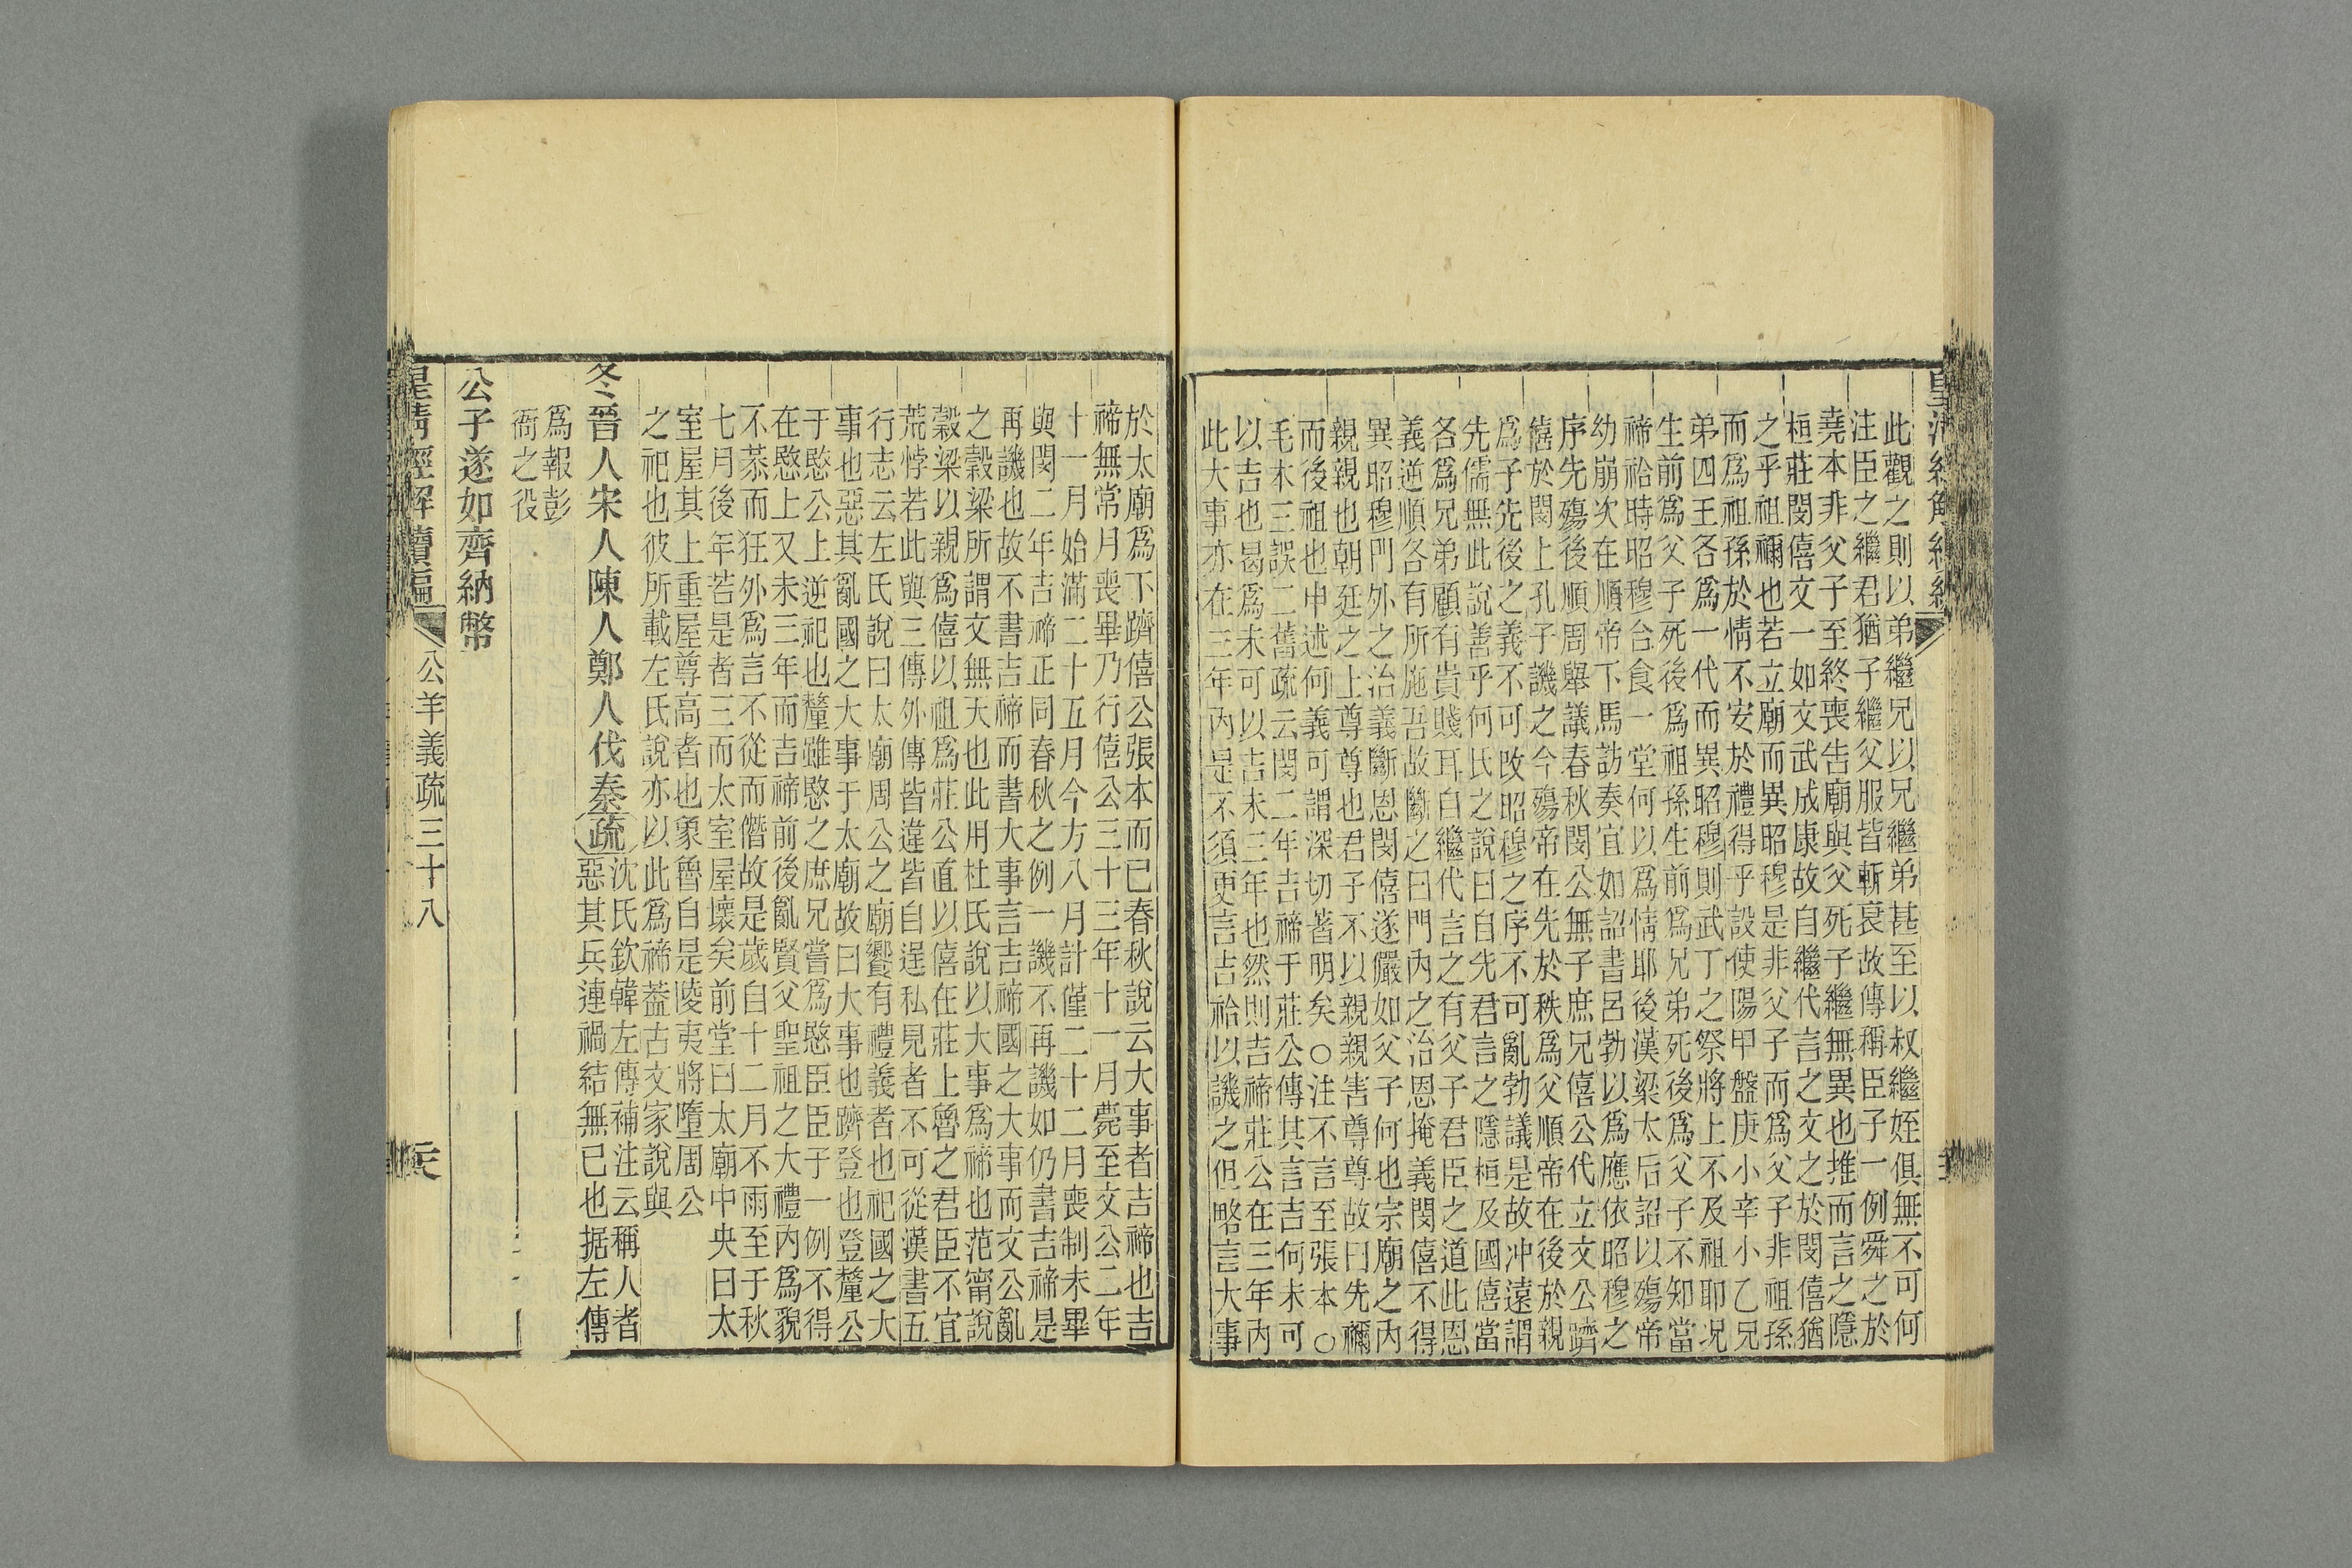 此觀之則以弟繼兄以兄繼弟甚至以叔繼姪俱無不可何
注臣之繼君猶子繼父服皆斬衰故傳稱臣子一例舜之於
堯本非父子至終喪告廟與父死子繼無異也推而言之隱
桓莊閔僖文一如文武成康故自繼代言之文之於閔僖猶
之乎祖禰也若立廟而異昭穆是非父子而爲父子非祖孫
而爲祖孫於情不安於禮得乎設使陽甲盤庚小辛小乙兄
弟四王各爲一代而異昭穆則武丁之祭將上不及祖耶况
生前爲父子死後爲祖孫生前爲兄弟死後爲父子不知當
禘祫時昭穆合食一堂何以爲情耶後漢梁太后詔以殤帝
幼崩次在順帝下馬訪奏宜如詔書呂勃以爲應依昭穆之
序先殤後順周舉議春秋閔公無子庶兄僖公代立文公躋
僖於閔上孔子譏之今殤帝在先於秩爲父順帝在後於親
爲子先後之義不可改昭穆之序不可亂勃議是故冲遠謂
先儒無此說善乎何氏之說曰自先君言之隱桓及國僖當
各爲兄弟顧有貴賤耳自繼代言之有父子君臣之道此恩
義逆順各有所施吾故斷之曰門內之治恩掩義閔僖不得
異昭穆門外之治義斷恩閔僖遂儼如父子何也宗廟之內
親親也朝廷之上尊尊也君子不以親親害尊尊故曰先禰
而後祖也申述何義可謂深切著明矣○注不言至張本○
毛本三誤二舊疏云閔二年吉禘于莊公傳其言吉何未可
以吉也曷爲未可以吉未三年也然則吉禘莊公在三年內
此大事亦在三年內是不須更言吉祫以譏之但略言大事
於太廟爲下躋僖公張本而已春秋說云大事者吉禘也吉
禘無常月喪畢乃行僖公三十三年十一月薨至文公二年
十一月始滿二十五月今方八月計僅二十二月喪制未畢
與閔二年吉禘正同春秋之例一譏不再譏如仍書吉禘是
再譏也故不書吉禘而書大事言吉禘國之大事而文公亂
之穀梁所謂文無天也此用杜氏說以大事爲禘也范甯說
穀梁以親爲僖以祖爲莊公直以僖在莊上魯之君臣不宜
荒悖若此與三傳外傳皆違皆自逞私見者不可從漢書五
行志云左氏說曰太廟周公之廟饗有禮義者也祀國之大
事也惡其亂國之大事于太廟故曰大事也躋登也登釐公
于愍公上逆祀也釐雖愍之庶兄嘗爲愍臣臣子一例不得
在愍上又未三年而吉禘前後亂賢父聖祖之大禮內爲貌
不恭而狂外爲言不從而僭故是歲自十二月不雨至于秋
七月後年若是者三而太室屋壞矣前堂曰太廟中央曰太
室屋其上重屋尊高者也象魯自是陵夷將墮周公
之祀也彼所載左氏說亦以此爲禘葢古文家說與
冬晉人宋人陳人鄭人伐秦疏沈氏欽韓左傳補注云稱人者
惡其兵連禍結無已也据左傳
爲報彭
衙之役
公子遂如齊納幣
皇淸經解續編 公羊義疏三十八